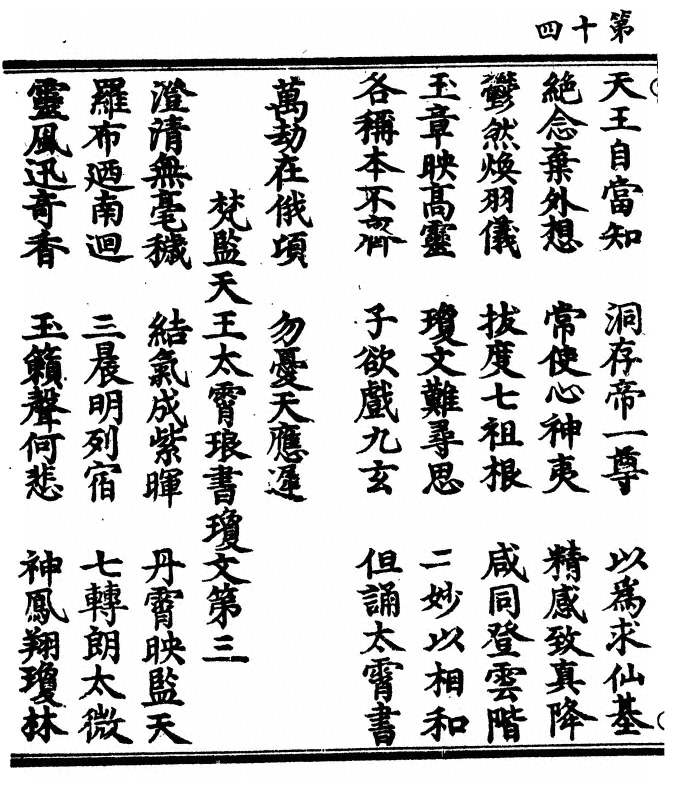 第十四
天王自當知 洞存帝一尊 以為求仙基
絕念棄外想 常使心神夷 精感致真降
鬱然煥羽儀 拔度七祖根 咸同登雲階
玉章映高靈 瓊文難尋思 二妙以相和
各稱本不齊 子欲戲九玄 但誦太霄書
萬劫在俄頃 勿憂天應遲
梵監天王太霄琅書瓊文第三
澄清無毫穢 結氣成紫暉 丹霄映監天
羅布迺南迴 三晨明列宿 七轉朗太微
靈風迅奇香 玉籟聲何悲 神鳳翔瓊林